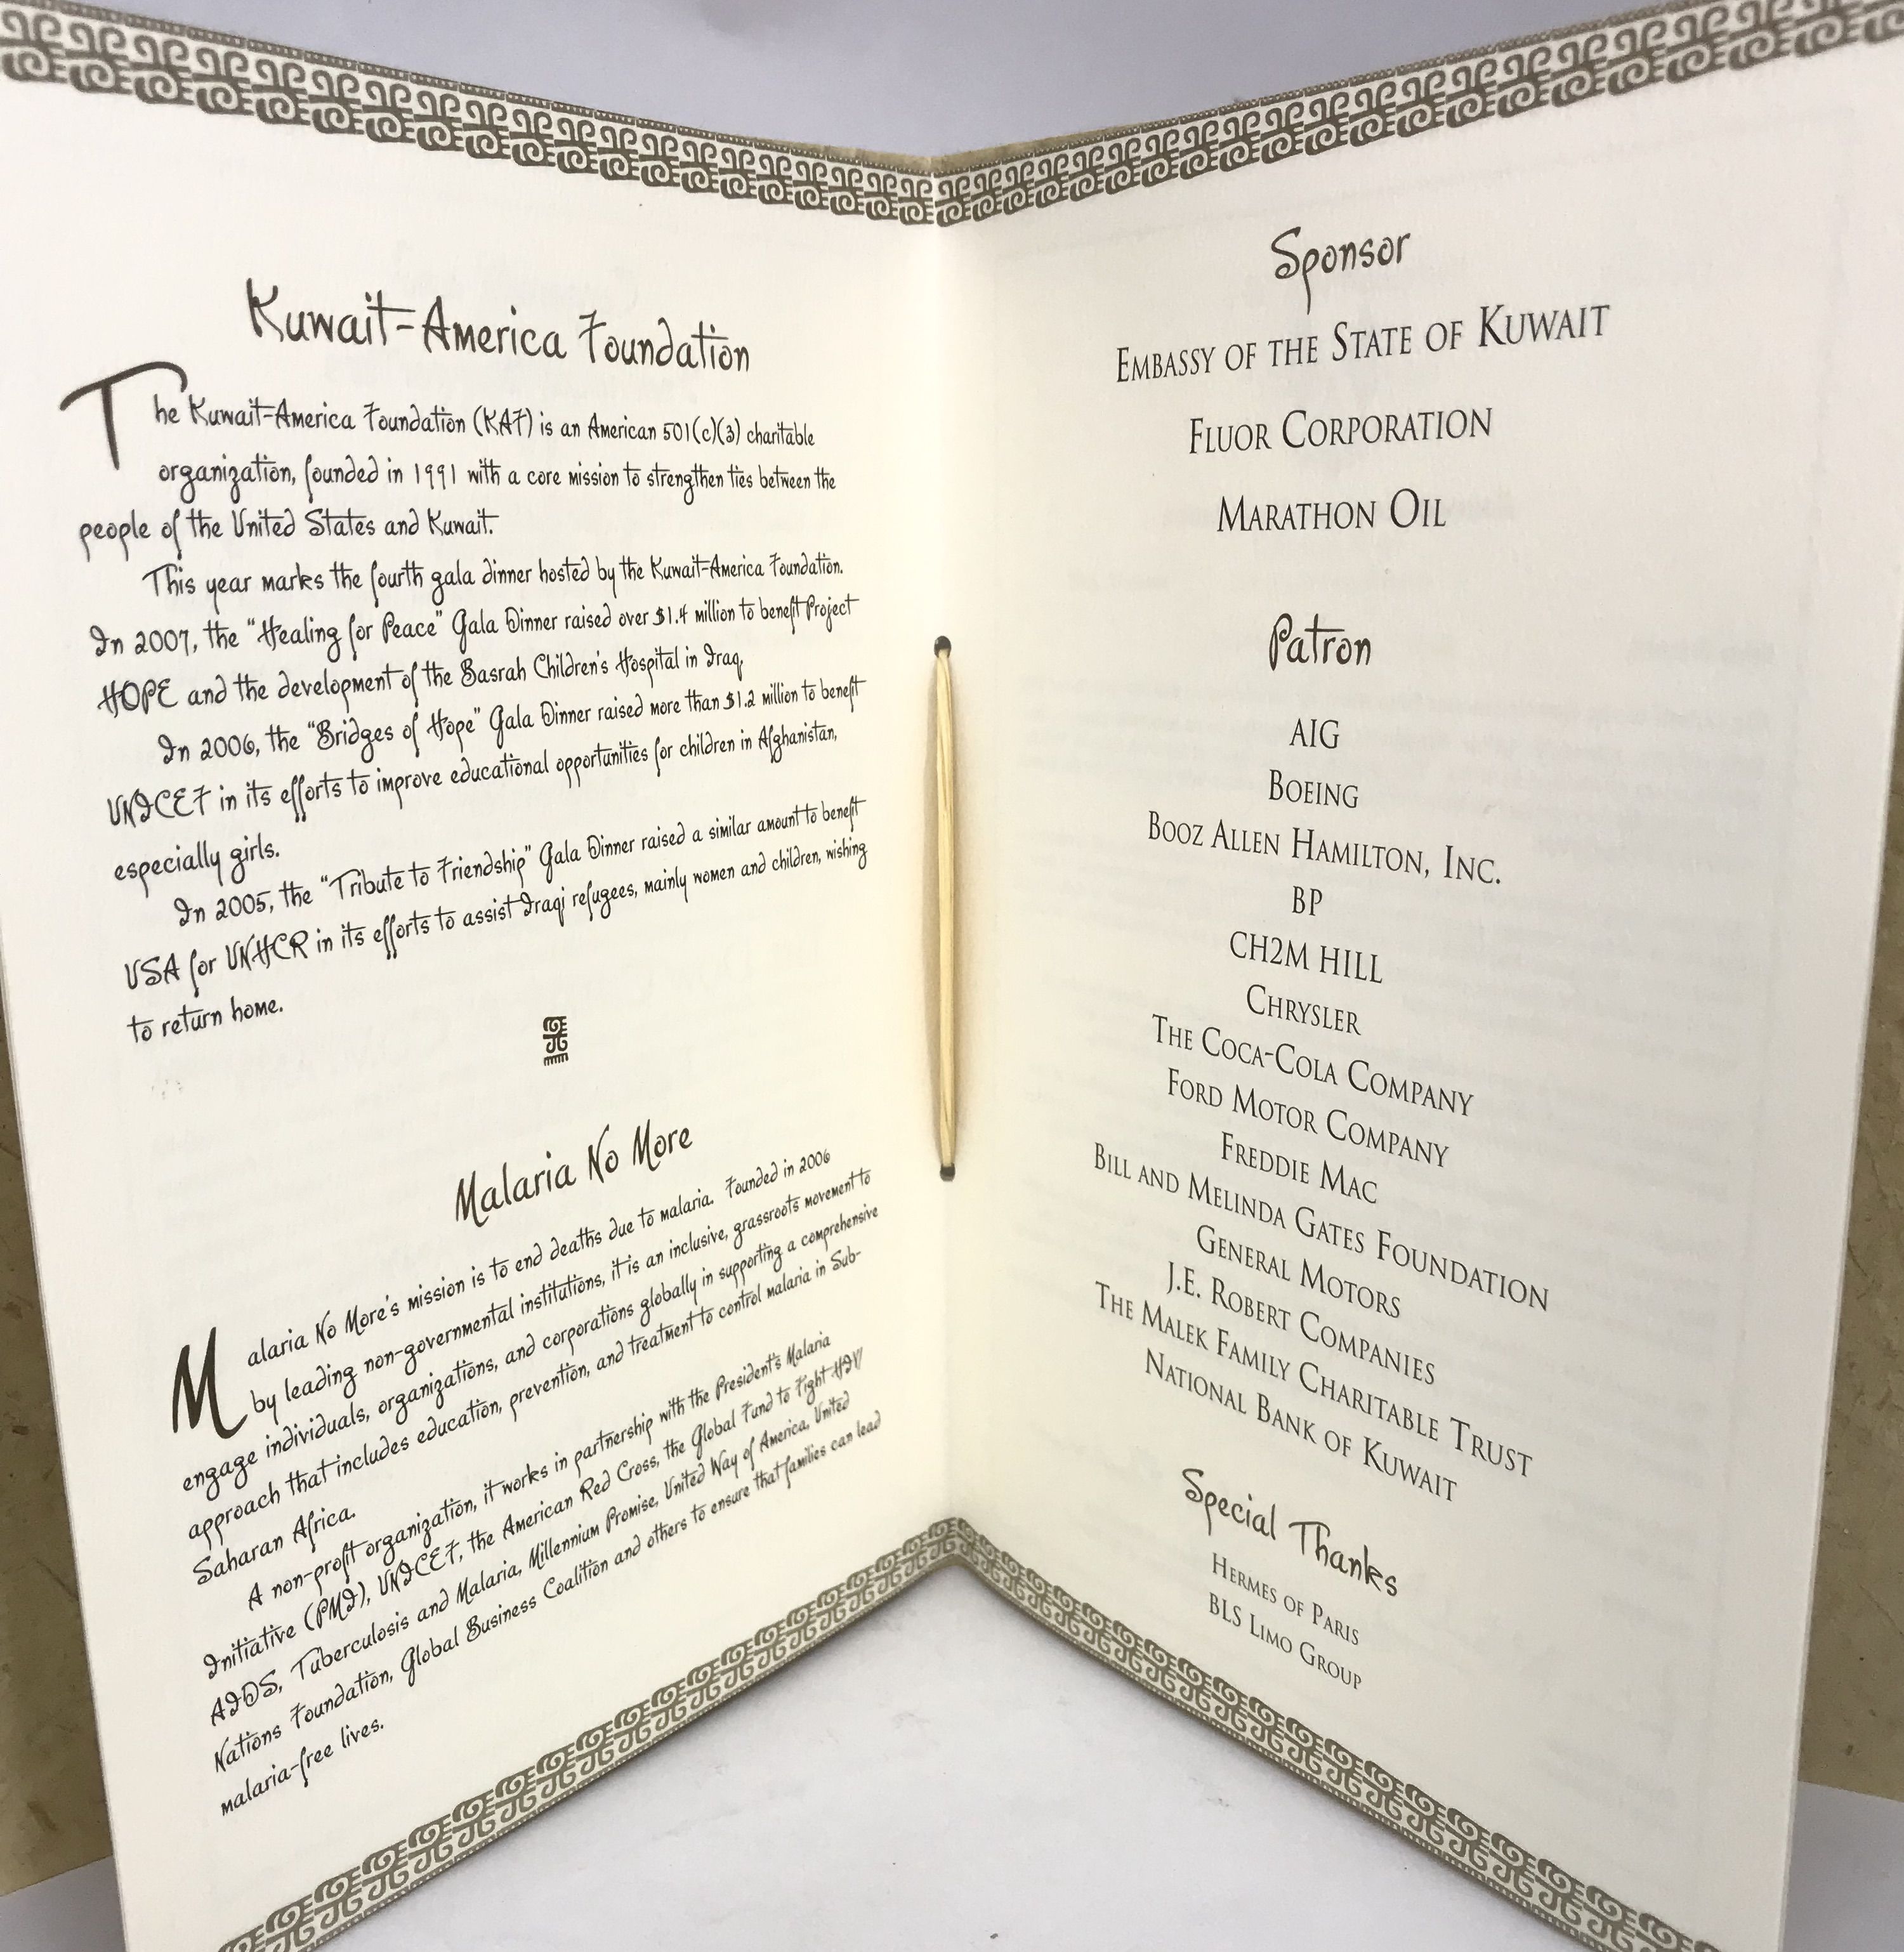 Kuwait-America Foundation
The Kuwait-America Foundation (KAF) is an American 501(c)(3) charitable
organization, founded in 1991 with a core mission to strengthen ties between the
people of the United States and Kuwait.
This year marks the fourth gala dinner hosted by the Kuwait-America Foundation.
In 2007, the "Healing for Peace" Gala Dinner raised over $1.4 million to benefit Project
HOPE and the development of the Basrah Children's Hospital in Iraq.
In 2006, the "Bridges of Hope" Gala Dinner raised more than $1.2 million to benefit
UNICEF in its efforts to improve educational opportunities for children in Afghanistan,
especially girls.
In 2005, the "Tribute to Friendship" Gala Dinner raised a similar amount to benefit
USA for UNHCR in its efforts to assist Iraqi refugees, mainly women and children, wishing
to return home.
Malaria No More
Malaria No More's mission is to end deaths due to malaria. Founded in 2006
by leading non-governmental institutions, it is an inclusive, grassroots movement to
engage individuals, organizations, and corporations globally in supporting a comprehensive
approach that includes education, prevention, and treatment to control malaria in Sub-
Saharan Africa.
A non-profit organization, it works in partnership with the President's Malaria
Initiative (PMI), UNICEF, the American Red Cross, the Global Fund to Fight HIV/
AIDS, Tuberculosis and Malaria, Millennium Promise, United Way of America, United
Nations Foundation, Global Business Coalition and others to ensure that families can lead
malaria-free lives.
Sponsor
EMBASSY OF THE STATE OF KUWAIT
FLUOR CORPORATION
MARATHON OIL
Patron
AIG
BOEING
BOOZ ALLEN HAMILTON, INC.
BP
CH2M HILL
CHRYSLER
THE COCA-COLA COMPANY
FORD MOTOR COMPANY
FREDDIE MAC
BILL AND MELINDA GATES FOUNDATION
GENERAL MOTORS
J.E. ROBERT COMPANIES
THE MALEK FAMILY CHARITABLE TRUST
NATIONAL BANK OF KUWAIT
Special Thanks
HERMES OF PARIS
BLS LIMO GROUP